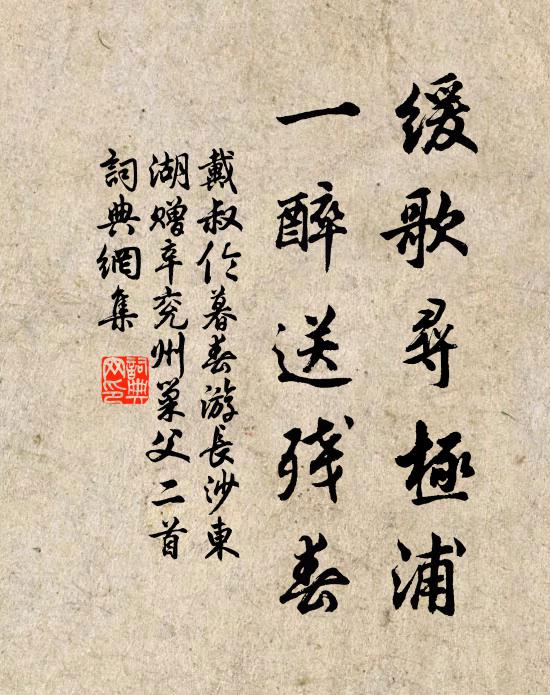 緩歌尋極浦
一醉送殘春
戴叔伦暮春游長沙東
湖贈辛兖州巢父二首
詞典網集
詞典
网印